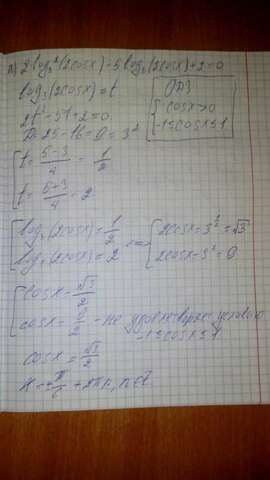 а) 2log₃²(2cosx)-5log₃(2cosx)+2=0
log₃(2cosx)=t
ОДЗ
cosx>0
-1≤cosx≤1
2t²-5t+2=0
D=25-16=9=3²
t=(5-3)/4=1/2
t=(5+3)/4=2
log₃(2cosx)=1/2
log₃(2cosx)=2
=> 2cosx=3^(1/2)=√3
2cosx=3²=9
cosx=√3/2
cosx=9/2 - не удовлетворяет условию
-1≤cosx≤1
cosx=√3/2
x=±π/6+2πn, n∈Z